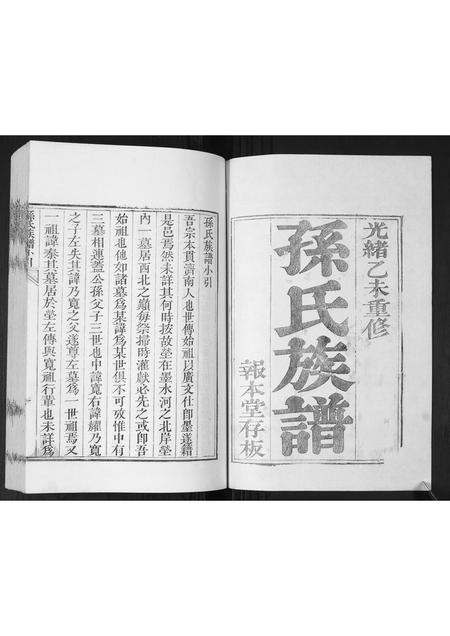 光緒乙未重修
孫氏族譜
報本堂存板
孫氏族譜小引
吾宗本貫濟南人也世傳始祖以廣文仕即墨遂籍
是邑焉然未詳其何時按故塋在墨水河之北岸塋
內一墓居西北之巔每祭掃時灌獻必先之或即吾
始祖也他如諸墓為某諱為某世俱不可攷惟中有
三墓相連蓋公孫父子三世也中諱寬右諱纙乃寬
之子左失其諱乃寬之父遂尊左墓為一世祖焉又
一祖諱泰其墓居於塋左傳與寬祖行輩也未詳為
孫氏族譜小引